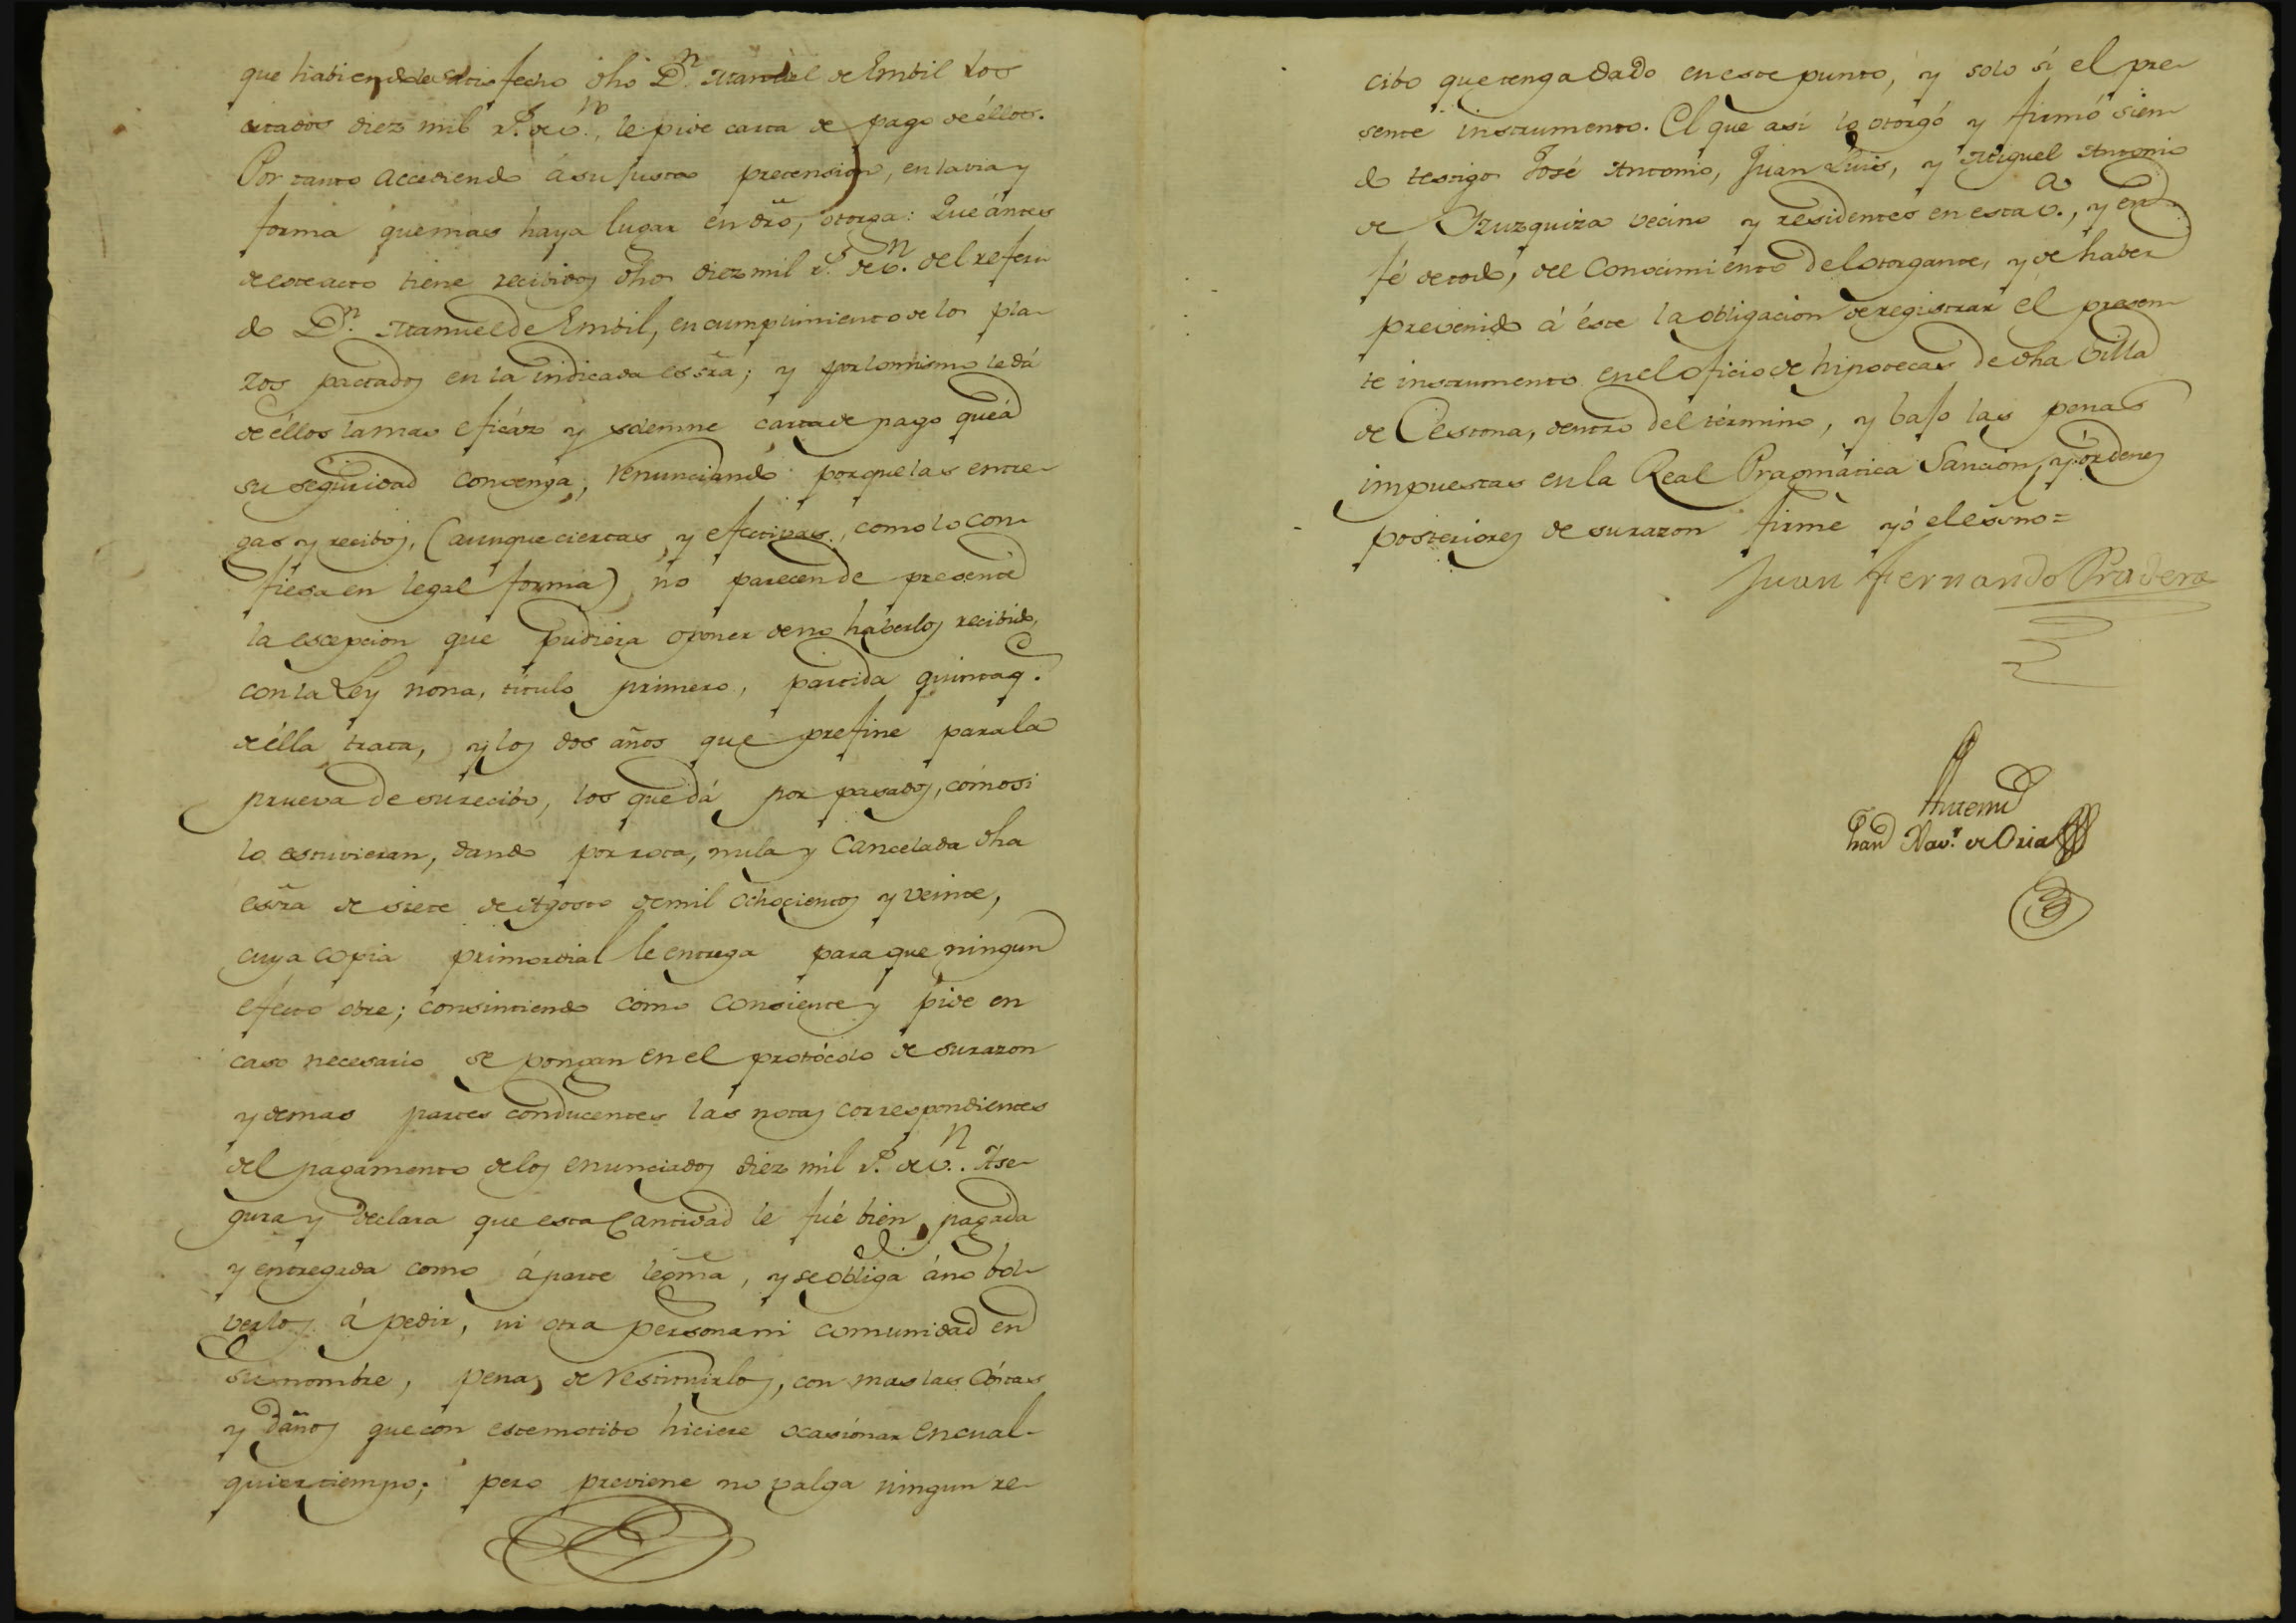 que habiendole satisfecho dho Dn. Manuel de Embil los
citados diez mil rs. de vn., le pide carta de pago de éllos.
Por tanto accediendo á su justa pretension, en la via y
forma que mas haya lugar en dro, otorga: Que ántes
de este acto tiene recibidos dhos diez mil rs. de vn. del referi
do Dn. Manuel de Embil, en cumplimiento de los pla-
zos pactados en la indicada essra; y por lo mismo le dá
de éllos la mas eficáz y solemne carta de pago que á
su seguridad convenga, renunciando porque las entre-
gas y recibos, (aunque ciertas y efectivas, como lo con-
fiesa en legal forma) no parecen de presente
la escepcion que pudiera oponer de no haberlos recibido,
con la Ley nona, título primero, partida quinta q.
de élla trata, y los dos años que prefine para la
prueva de su recibo, los que dá por pasados, cómo si
lo estuvieran, dando por rota, nula y cancelada dha
essra de siete de Agosto de mil ochocientos y veinte,
cuya copia primordial le entrega para que ningun
efecto obre; consintiendo cómo consiente y pide en
caso necesario se pongan en el protócolo de su razon
y demas partes conducentes las notas correspondientes
del pagamento de los enunciados diez mil rs. de vn. Ase-
gura y declara que esta Cantidad le fué bien pagada
y entregada como á parte legma, y se obliga á no bol-
verlos á pedir, ni otra persona ni comunidad en
su nombre, pena de restituirlos, con mas las Costas
y daños que con este motibo hiciere ocasionar en cual-
quier tiempo; pero previene no valga ningun re-
cibo que tenga dado en este punto, y solo si el pre-
sente instrumento. El que así lo otorgó y firmó sien-
do testigos José Antonio, Juan Luis, y Miguel Antonio
de Uruzquiza vecino y residentes en esta va., y en
fé de todo, del Conocimiento del otorgante, y de haber
prevenido á éste la obligacion de registrar el presen-
te instrumento en el oficio de hipotecas de dha Villa
de Cestona, dentro del término, y bajo las penas
impuestas en la Real Pragmática Sancion, y órdenes
posteriores de su razon firmé yó el essno=
Juan Fernando Pradera
Antemi
Navr. de Oria